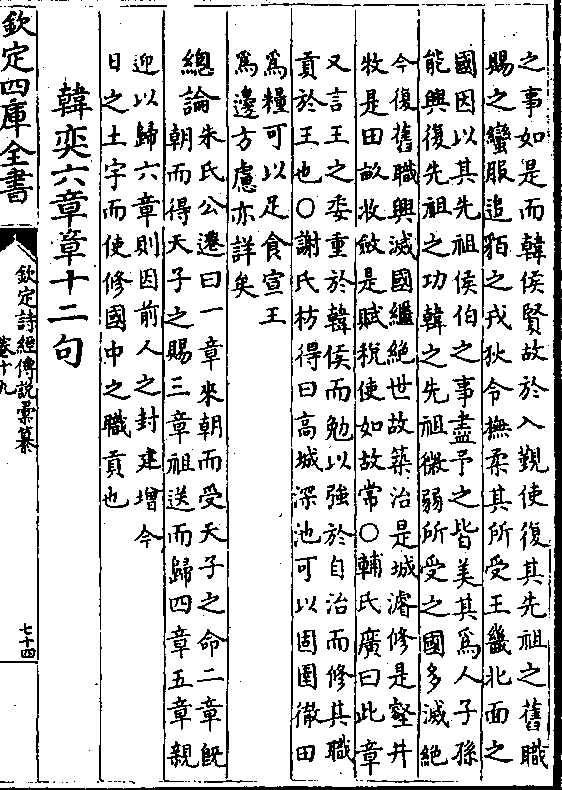 之事如是而韓侯賢故於入覲使復其先祖之舊職
賜之蠻服追貊之戎狄令撫柔其所受王畿北面之
國因以其先祖侯伯之事盡予之皆美其為人子孫
能興復先祖之功韓之先祖微弱所受之國多滅絕
今復舊職興滅國繼絕世故築治是城濬修是壑井
牧是田畝收斂是賦稅使如故常○輔氏廣曰此章
又言王之委重於韓侯而勉以強於自治而修其職
貢於王也○謝氏枋得曰高城深池可以固圉徹田
為糧可以足食宣王
為邊方慮亦詳矣
總論
朱氏公遷曰一章來朝而受天子之命二章既
朝而得天子之賜三章祖送而歸四章五章親
迎以歸六章則因前人之封建增今
日之土宇而使修國中之職貢也
韓奕六章章十二句
欽定四庫全書
欽定詩經傳說彙纂
卷十九
七十四